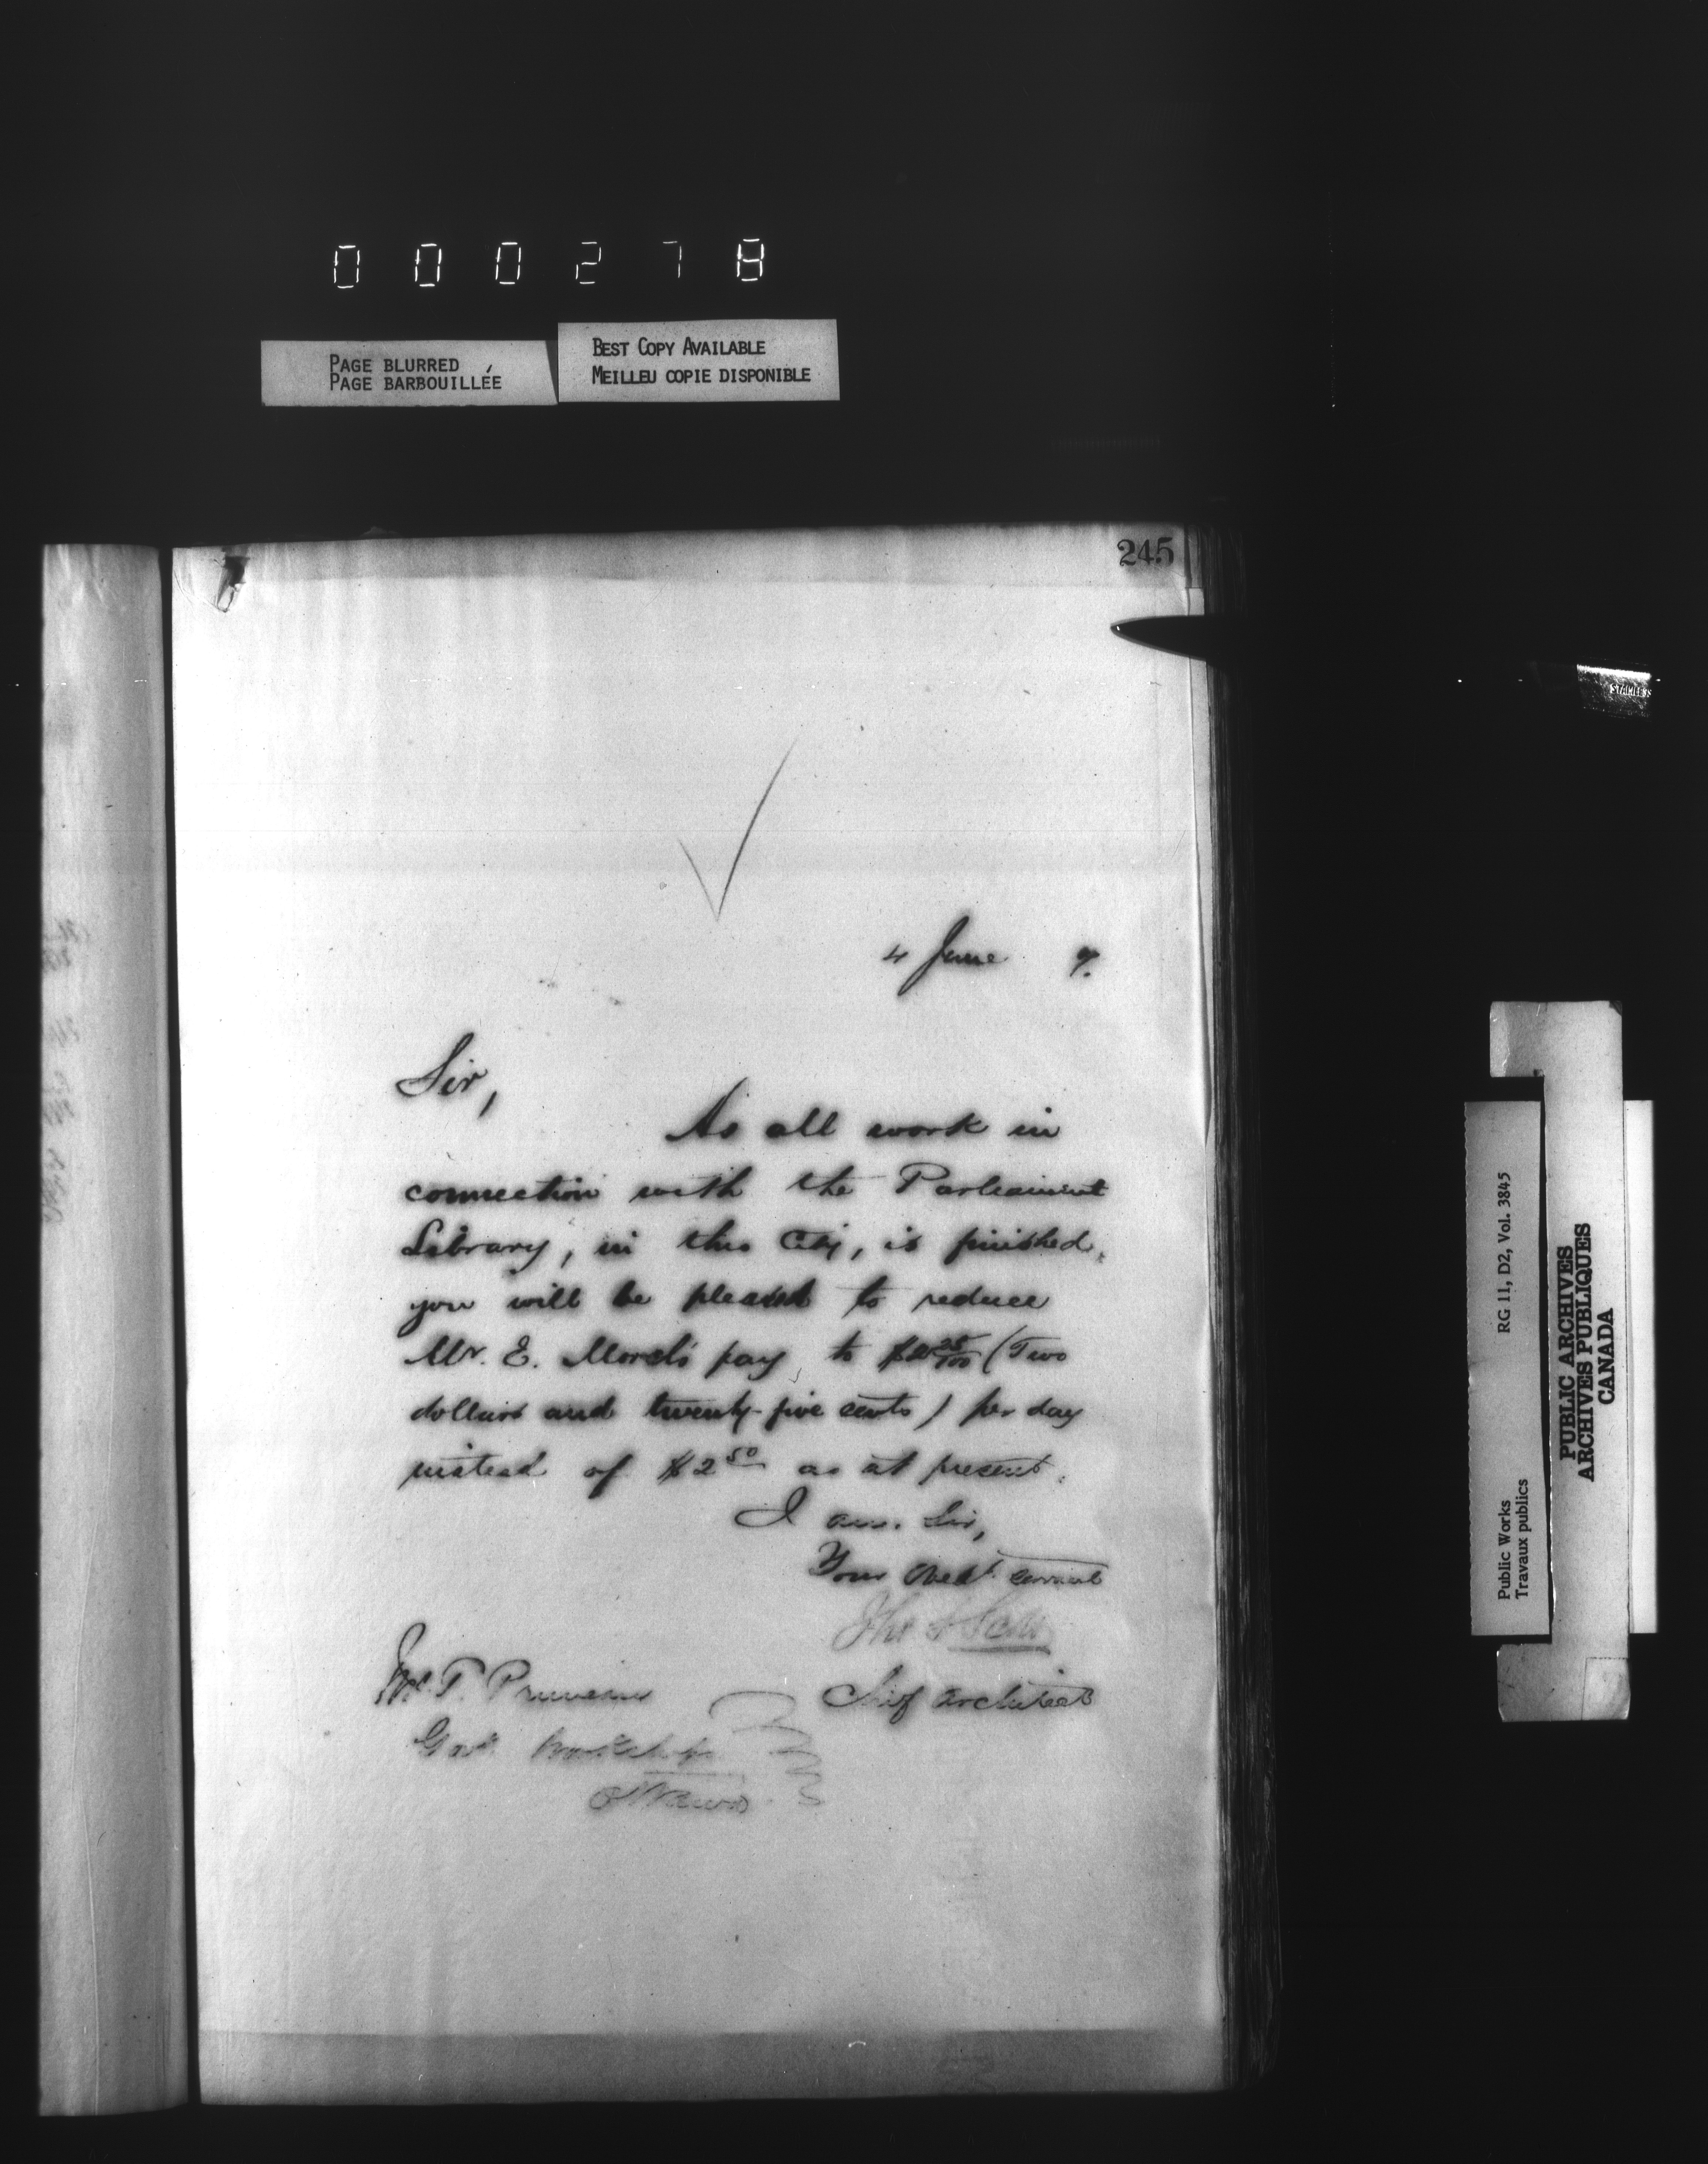 000278
PAGE BLURRED
PAGE BARBOUILLÉE
BEST COPY AVAILABLE
MEILLEU COPIE DISPONIBLE
245
4 June 7.
Sir,
As all work in
connection with the Parliament
Library, in this City, is finished,
you will be pleased to reduce
Mr. E. pay to $2 25/100 (Two
dollars and twenty-five cents) per day
instead of $2 50 as at present.
I am. Sir,
Your Obedt. servant
Thos S Scott
Chief Architect
Mr. T.
Govt. Workshops
Ottawa
RG 11, D2, Vol. 3845
Public Works
Travaux publics
PUBLIC ARCHIVES
ARCHIVES PUBLIQUES
CANADA